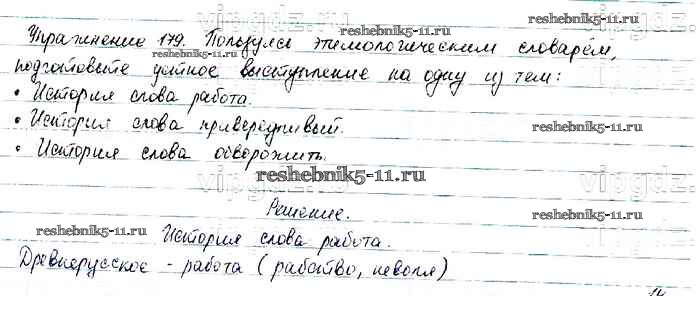 Упражнение 179. Пользуясь этимологическим словарём,
подготовьте устное выступление на одну из тем:
• История слова работа.
• История слова привередливый.
• История слова обворожить.
Решение.
История слова работа.
Древнерусское - работа (рабство, неволя)
vipgdz.ru
reshebnik5-11.ru
reshebnik5-11.ru
reshebnik5-11.ru
reshebnik5-11.ru
reshebnik5-11.ru
reshebnik5-11.ru